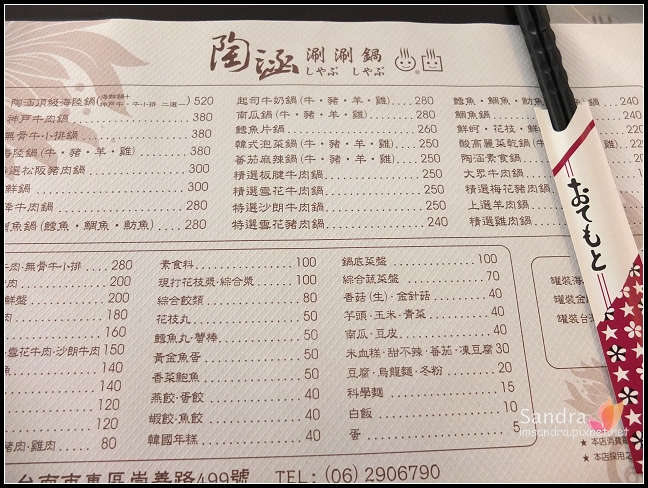 陶涵 涮涮鍋
しゃぶ しゃぶ
陶涵頂級海陸鍋(海鮮鍋+神戶牛、牛小排 二選一) 520
神戶牛肉鍋 380
無骨牛小排鍋 380
海陸鍋(牛・豬・羊・雞) 380
選松阪豬肉鍋 300
鮮鍋 300
牛肉鍋 280
魚鍋(鱈魚・鯛魚・魴魚) 280
起司牛奶鍋(牛・豬・羊・雞) 280
南瓜鍋(牛・豬・羊・雞) 280
鱈魚片鍋 260
韓式泡菜鍋(牛・豬・羊・雞) 250
番茄麻辣鍋(牛・豬・羊・雞) 250
精選板腱牛肉鍋 250
精選雪花牛肉鍋 250
特選沙朗牛肉鍋 250
特選雪花豬肉鍋 240
鱈魚・鯛魚・魴魚 240
鯛魚鍋 240
鮮蚵・花枝・鮮 220
酸高麗菜鍋(牛・豬・羊・雞) 22
陶涵素食鍋
大眾牛肉鍋
精選梅花豬肉鍋
上選羊肉鍋
精選雞肉鍋
おてもと
牛肉・無骨牛小排 280
200
鮮盤 200
肉 180
160
雪花牛肉・沙朗牛肉 150
魚 140
140
120
120
豬肉・雞肉 80
素食料 100
現打花枝漿・綜合漿 100
綜合餃類 80
花枝丸 50
鱈魚丸・蟹棒 50
黃金魚蛋 50
香菜鮑魚 50
燕餃・蛋餃 40
蝦餃・魚餃 40
韓國年糕 40
鍋底菜盤 100
綜合蔬菜盤 70
香菇(生)・金針菇 40
芋頭・玉米・青菜 40
南瓜・豆皮 40
米血糕・甜不辣・番茄・凍豆腐 30
豆腐・烏龍麵・冬粉 20
科學麵 15
白飯 10
蛋 5
罐裝海
罐裝金
罐裝台
★本店消費
★本店採用
台南市東區崇善路499號 TEL: (06) 2906790
Sandra
imsandra.pixnet.net